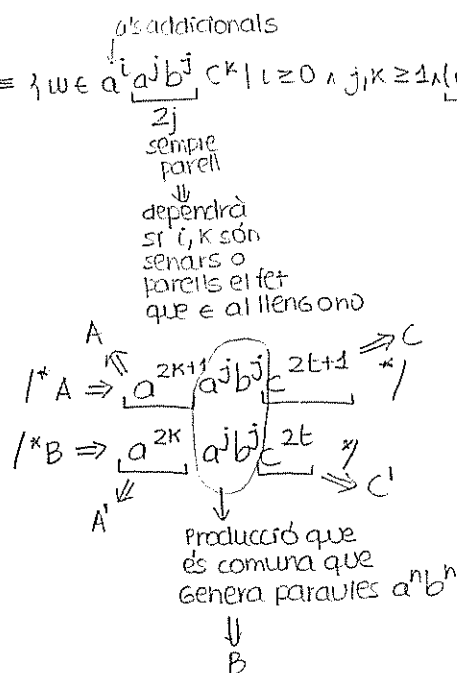 a's addicionals
≡ {w ∈ a^i a^j b^j c^k | i ≥ 0 ∧ j,k ≥ 1 ∧ (
2j
sempre
parell
⇓
dependrà
si i, k són
senars o
parells el fet
que ∈ al lleng o no
A C
/* A ⇒ a^{2k+1} a^j b^j c^{2t+1} */
/* B ⇒ a^{2k} a^j b^j c^{2t} */
A' C'
Producció que
és comuna que
Genera paraules a^n b^n
⇓
B